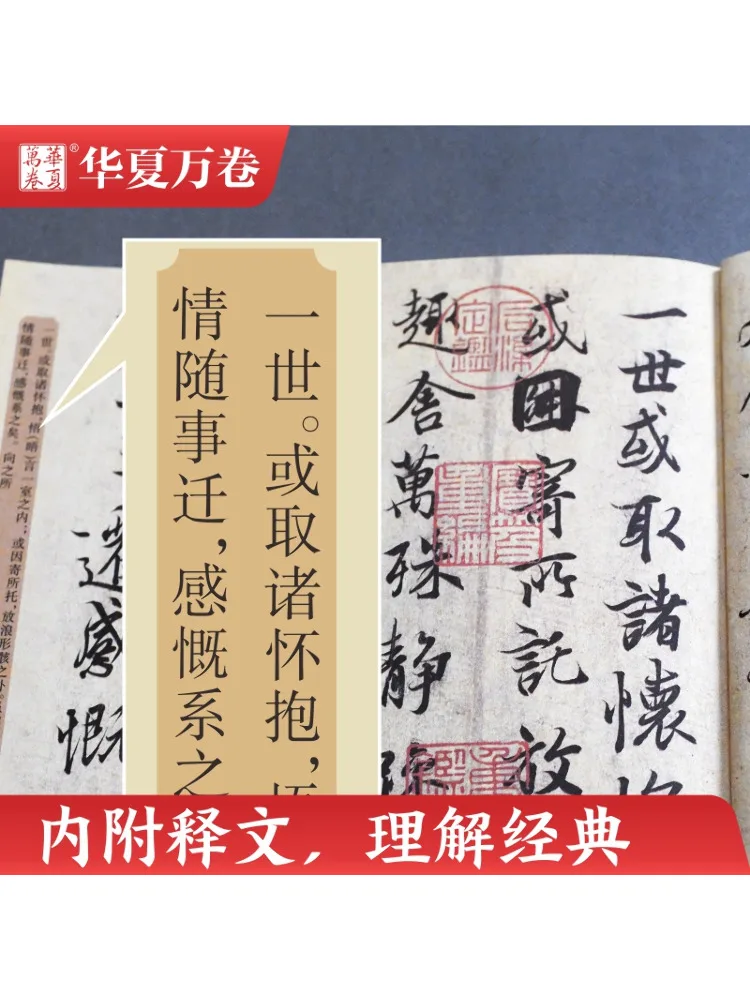 華夏萬卷®
华夏万卷
一世或取諸懷
或因寄所託放
趣舍萬殊静
一世。或取诸怀抱，
情随事迁，感慨系之
一世。或取诸怀抱，悟（晤）言一室之内；或因寄所托，放浪形骸之外。
情随事迁，感慨系之矣。向之所
遷感慨
内附释文，理解经典